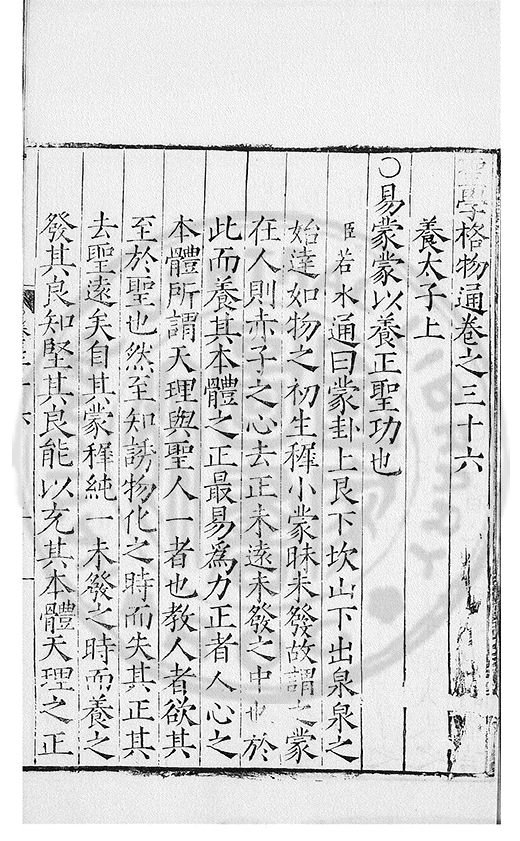 聖學格物通卷之三十六
養太子上
○易蒙蒙以養正聖功也
臣若水通曰蒙卦上艮下坎山下出泉泉之
始達如物之初生穉小蒙昧未發故謂之蒙
在人則赤子之心去正未遠未發之中也於
此而養其本體之正最易為力正者人心之
本體所謂天理與聖人一者也教人者欲其
至於聖也然至知誘物化之時而失其正其
去聖遠矣自其蒙穉純一未發之時而養之
發其良知堅其良能以充其本體天理之正